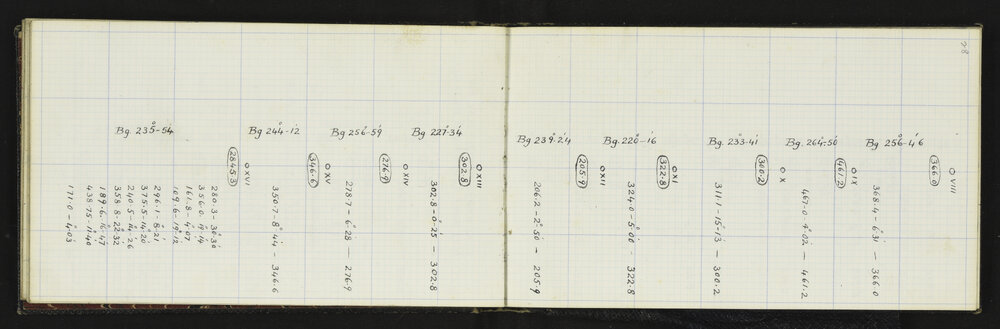 78
⊙ VIII
366.0
Bg 256°-46'
368.4 - 6°31' - 366.0
⊙ IX
461.2
Bg 264°-50'
467.0 - 9°02' - 461.2
⊙ X
300.2
Bg 233°-41'
311.1 - 15°-13' - 300.2
⊙ XI
322.8
Bg 220°-16'
324.0 - 5°00' - 322.8
⊙ XII
205.9
Bg 239°.24'
206.2 - 2°50' - 205.9
⊙ XIII
302.8
Bg 227°.34'
302.8 - 0°-25' - 302.8
⊙ XIV
276.9
Bg 256°-59'
278.7 - 6°28' - 276.9
⊙ XV
346.6
Bg 244°-12'
350.7 - 8°44' - 346.6
⊙ XVI
2845.3
Bg 235°-54'
280.3 - 30°30'
356.0 - 19°14'
161.8 - 4°07'
109.6 - 19°12'
296.1 - 8°21'
375.5 - 14°20'
240.5 - 14°26'
358.8 - 22°32'
189.6 - 16°47'
438.75 - 11°40'
171.0 - 4°03'